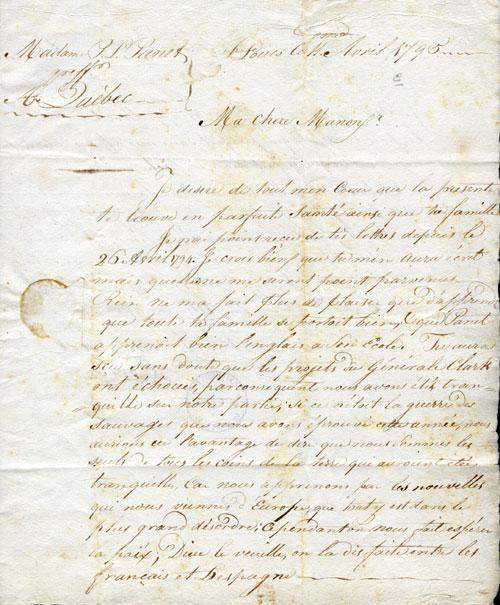 Madam P. Ls Panet
greff.
A Québec
St Louis le 1er Avril 1795
Ma chere Manon,
Je desire de tout mon Coeur que la presente
te trouve en parfait Santé ainsi que ta famille
Je n'ai point recue de tes lettres depuis le
26 Avril 1794. Je crois bien que tu m'en aura écrit
mais qu'elle ne me seront point parvenus
Rien ne ma fait plus de plaisir que d'apprendre
que toute ta famille se portoit bien, & que Panet
apprenoit bien l'englais a son Ecole. Tu aura
sçeu sans dout que les projets du Générale Clark
ont échouées, par consequent nous avons étés tran-
quille sur notre partie; si ce n'étoit la guerre des
Sauvages que nous avons éprouvé cette année, nous
aurions eu l'avantage de dire que nous sommes les
seuls de tous les coins de la terre qui auroient étée
tranquilles. Car nous apprenons par les nouvelles
qui nous viennes d'Europe, que tout y est dans le
plus grand désordre; Cependant on nous fait espérer
la paix; Dieu le veuille, on la dis faite entre les
français et L'espagne